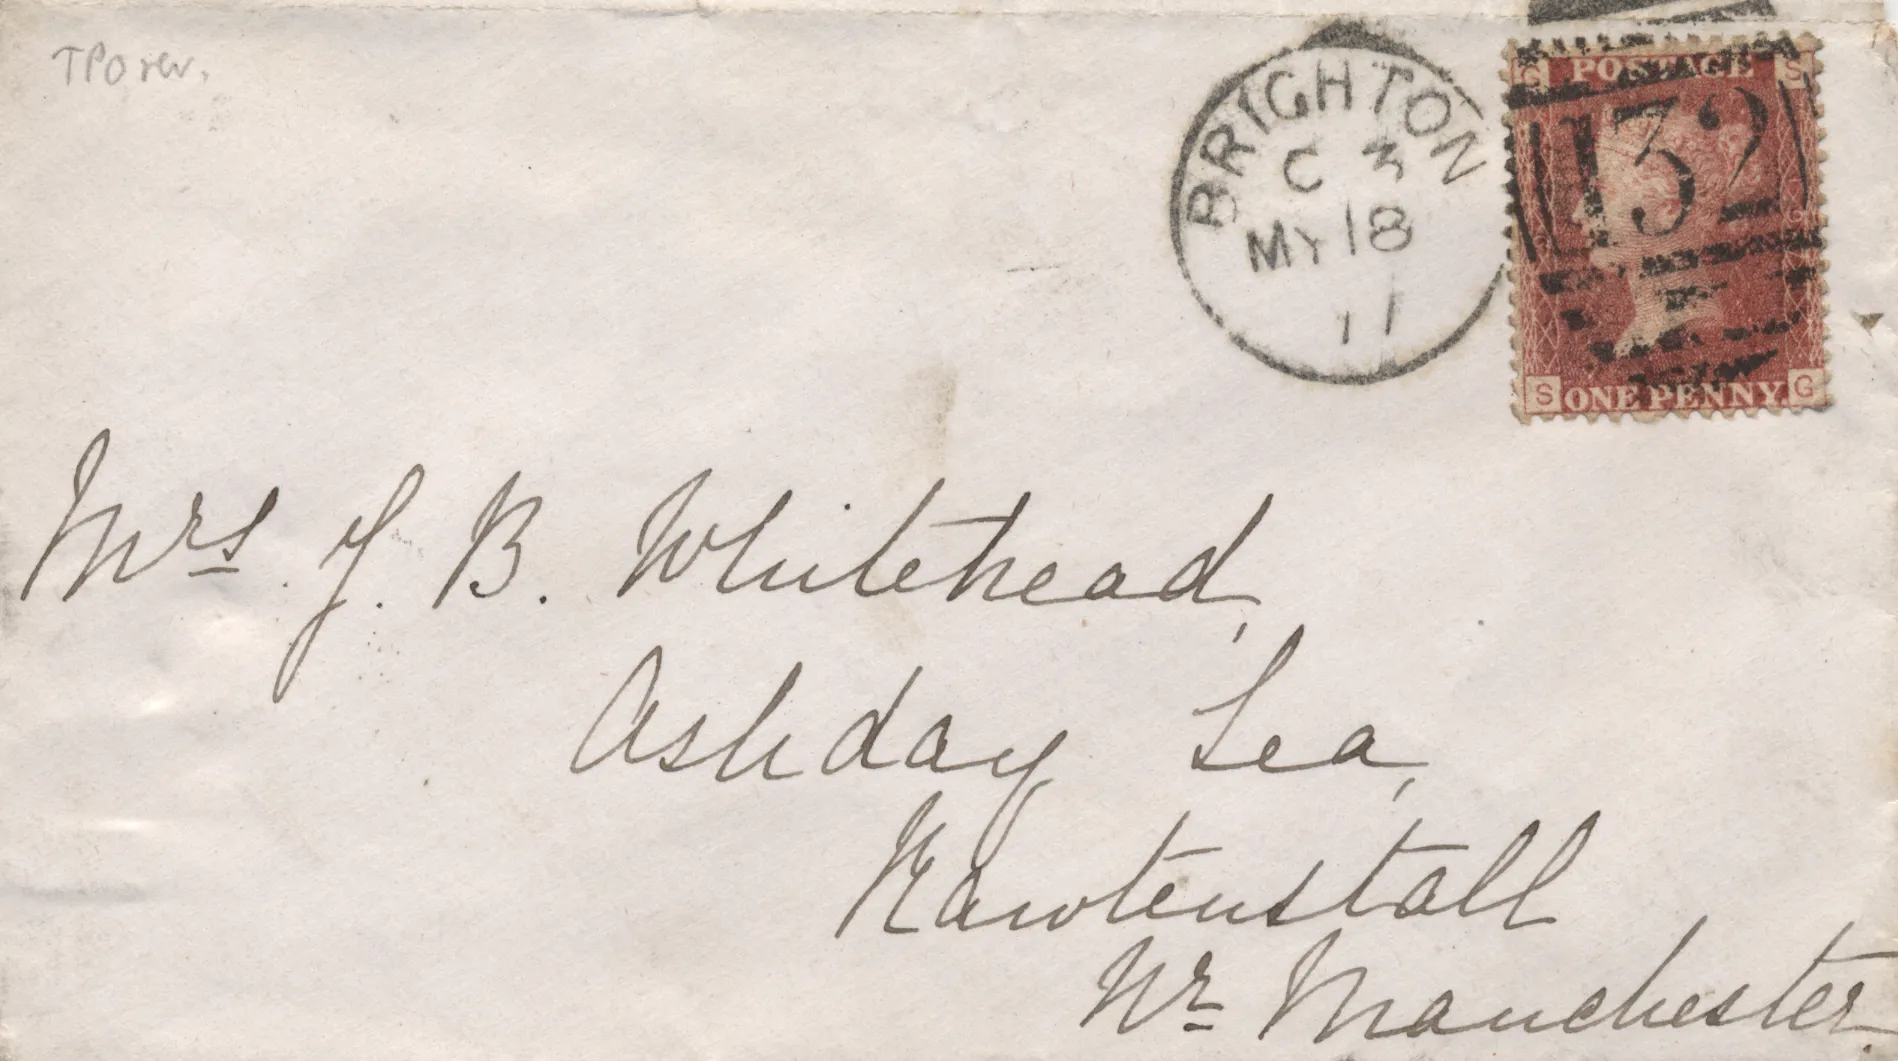 TPO rev.
BRIGHTON
C 3
MY 18
77
G POSTAGE S
132
S ONE PENNY G
Mrs J. B. Whitehead,
Ashday Lea,
Rawtenstall
Nr Manchester